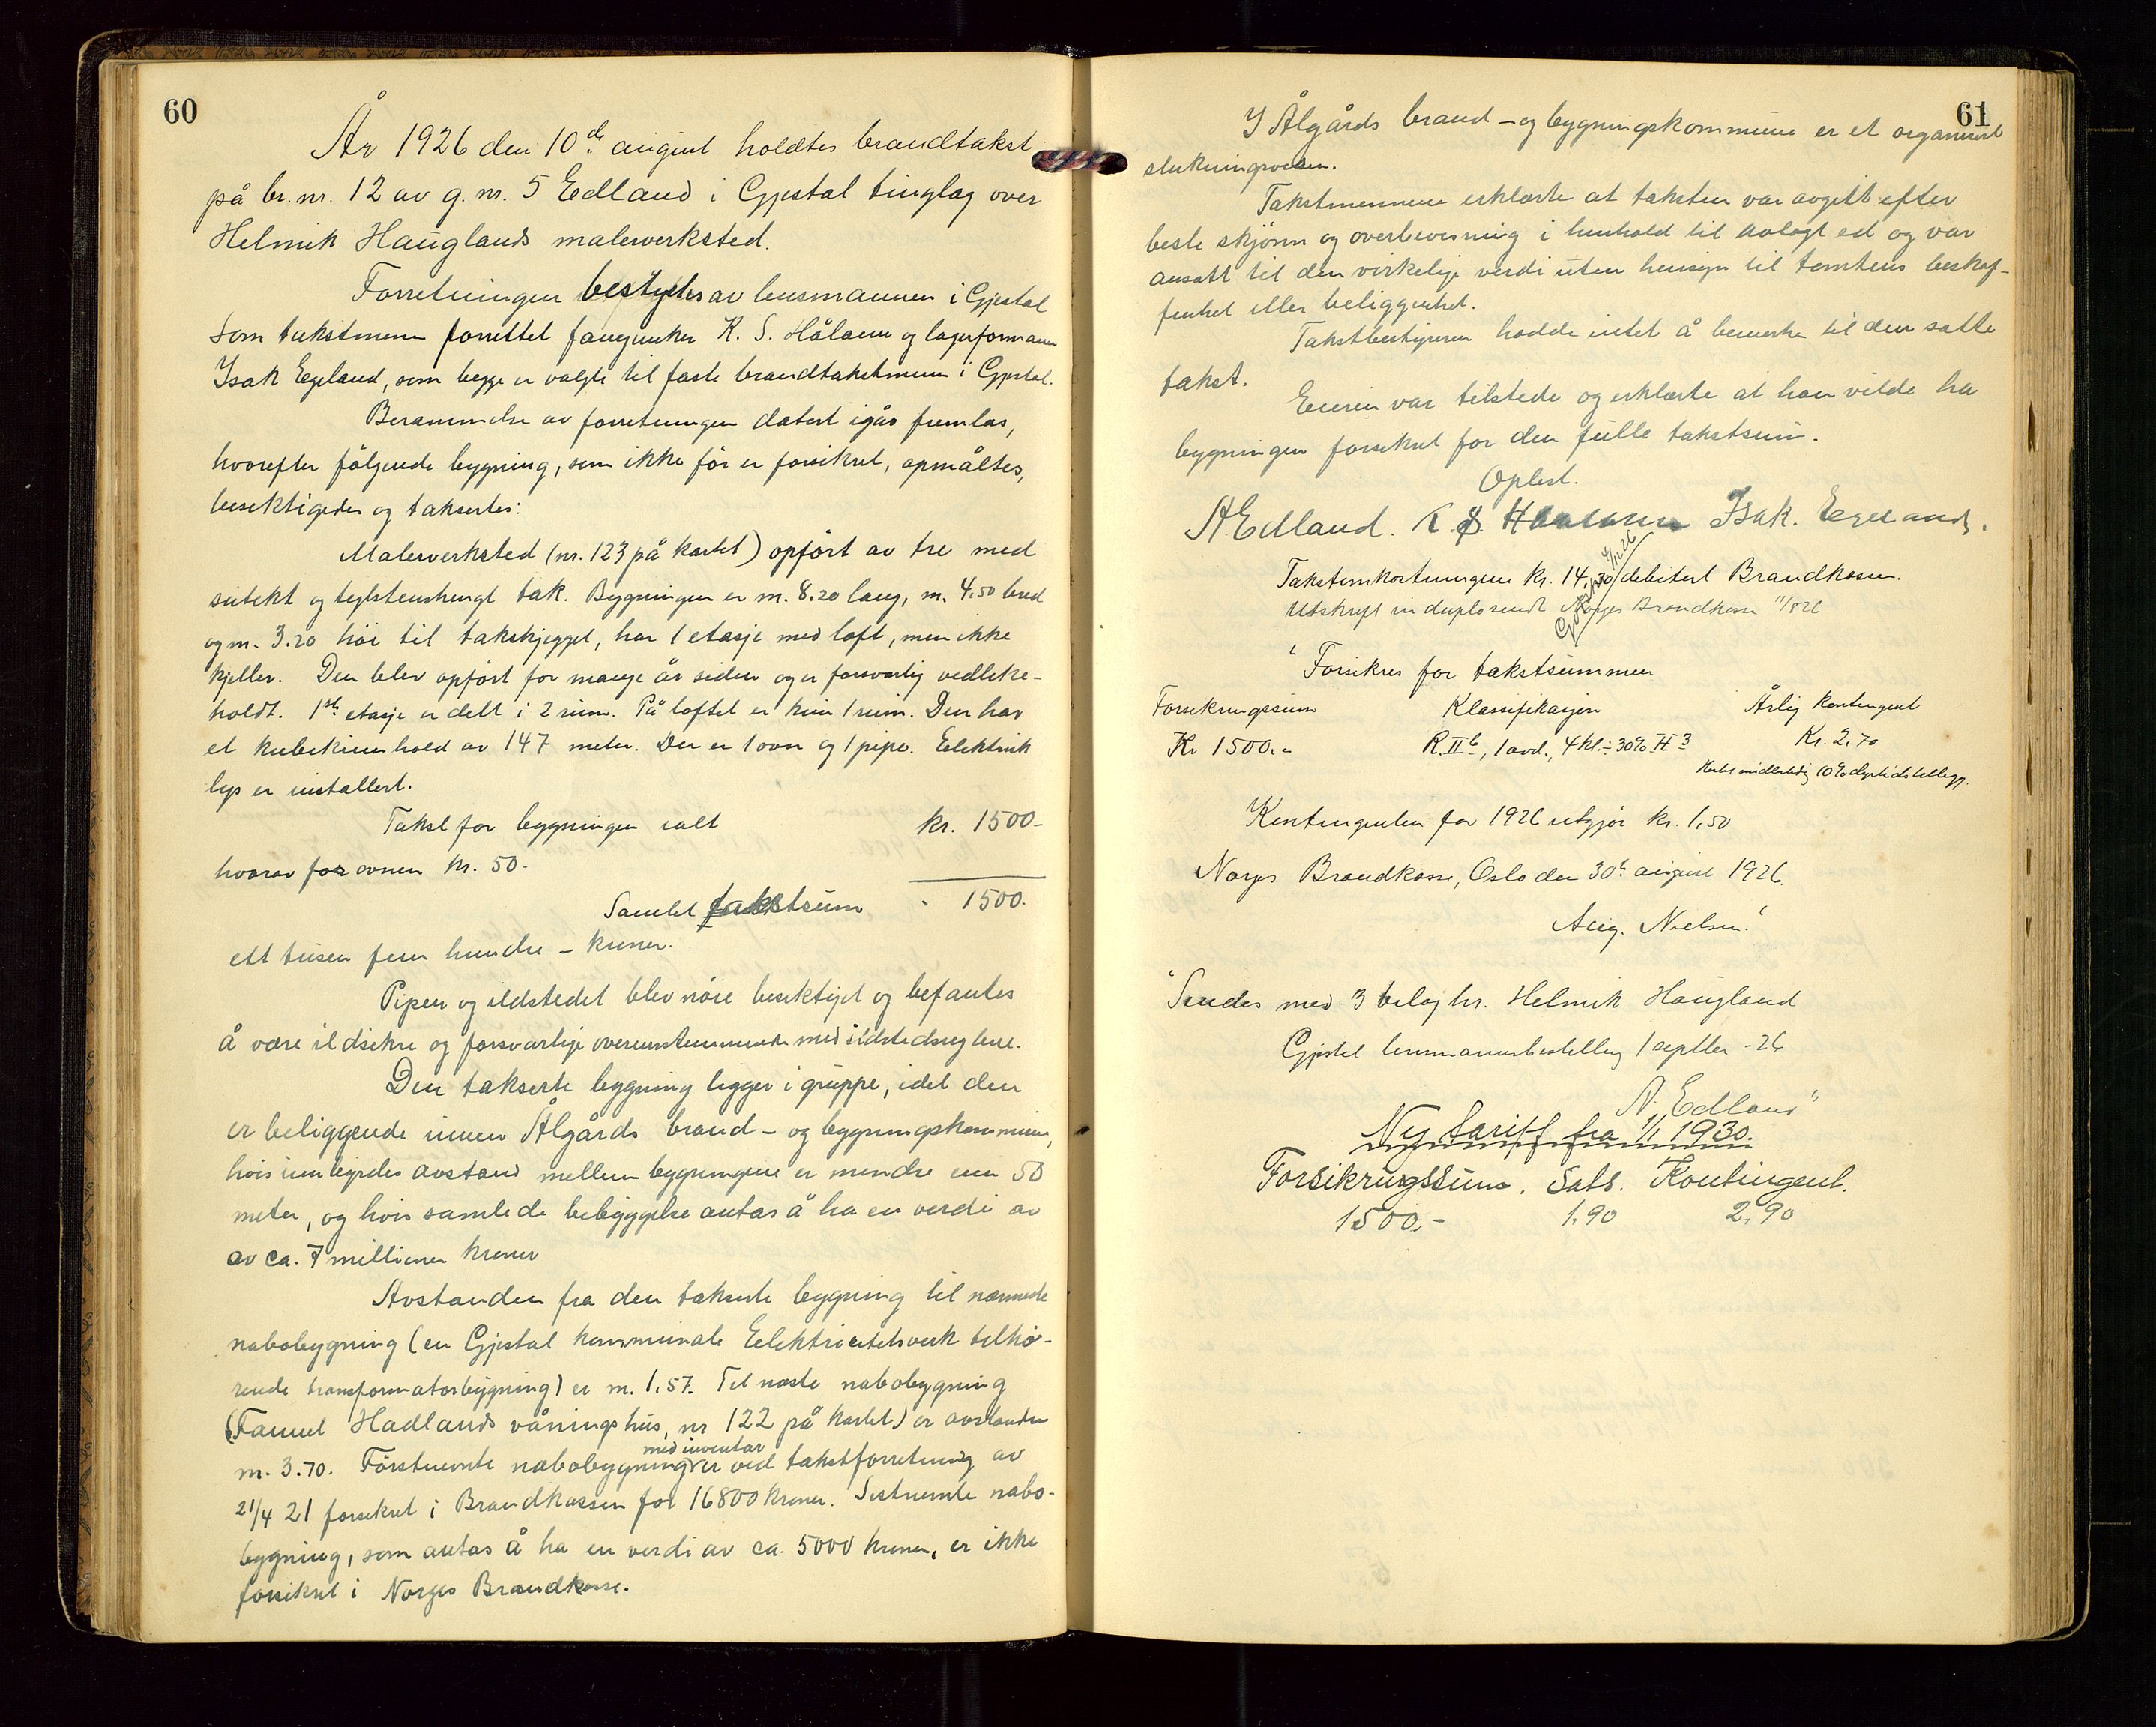 60
År 1926 den 10de august holdtes brandtakst
på br. nr. 12 av g. nr. 5 Edland i Gjestal tinglag over
Helmik Hauglands malerverksted.
Forretningen bestyrtes av lensmannen i Gjestal
Som takstmenn forrettet K. S. Hålann og lagerformann
Isak Egeland, som begge er valgte til faste brandtakstmenn i Gjestal.
Berammelse av forretningen datert igår fremlas,
hvorefter følgende bygning, som ikke før er forsikret, opmåltes,
besiktigedes og taksertes:
Malerverksted (nr. 123 på kartet) opført av tre med
sutekt og teglstenshengt tak. Bygningen er m. 8.20 lang, m. 4.50 bred
og m. 3.20 høi til takskjegget, har 1 etasje med loft, men ikke
kjeller. Den blev opført for mange år siden og er forsvarlig vedlike-
holdt. 1ste etasje er delt i 2 rum. På loftet er kun 1 rum. Den har
et kubikinnhold av 147 meter. Der er 1 ovn og 1 pipe. Elektrisk
lys er installert.
Takst for bygningen ialt kr. 1500-
hvorav for ovnen kr. 50.-
Samlet takstsum " 1500.
ett tusen fem hundre – kroner.
Pipen og ildstedet blev nøie besiktiget og befantes
å være ildsikre og forsvarlige overensstemmende med ildstedsreglene.
Den takserte bygning ligger i gruppe, idet den
er beliggende innen Ålgårds brand – og bygningskommune,
hvis innbyrdes avstand mellem bygningene er mindre enn 50
meter, og hvis samlede bebyggelse antas å ha en verdi av
av ca. 7 millioner kroner
Avstanden fra den takserte bygning til nærmeste
nabobygning (en Gjestal kommunale Elektricitetsverk tilhø-
rende transformatorbygning) er m. 1.57. Til næste nabobygning
(Samuel Hadlands våningshus, nr 122 på kartet) er avstanden
med inventar
m. 3.70. Førstnevnte nabobygning er ved takstforretning av
21/4 21 forsikret i Brandkassen for 16800 kroner. Sistnevnte nabo-
bygning, som antas å ha en verdi av ca. 5000 kroner, er ikke
forsikret i Norges Brandkasse.
61
I Ålgårds brand – og bygningskommune er et organisert
slukningsvesen.
Takstmennene erklærte at taksten var avgitt efter
beste skjønn og overbevisning i henhold til avlagt ed og var
ansatt til den virkelige verdi uten hensyn til tomtens beskaf-
fenhet eller beliggenhet.
Takstbestyreren hadde intet å bemerke til den satte
takst.
Eieren var tilstede og erklærte at han vilde ha
bygningen forsikret for den fulle takstsum.
Oplest.
A Edland. K. S. Haalann Isak. Egeland.
Takstomkostningene kr. 14.30 debitert Brandkassen.
Utskrift in duplo sendt Norges Brandkasse 11/8 26
"Forsikres for takstsummen
Forsikringssum Klassifikasjon Årlig kontingent
Kr 1500.- R. IIb, 1 avd., 4 kl. ÷ 30% H 3 Kr. 2.70
Hertil midlertidig 10% dyrtidstillegg.
Kontingenten for 1926 utgjør kr. 1.50
Norges Brandkasse, Oslo den 30. august 1926.
Aug. Nielsen."
"Sendes med 3 bilag hr. Helmik Haugland
Gjestal lensmannsbestilling 1 septbr - 26
A. Edland"
Ny tariff fra 1/1 1930.
Forsikringssum. Sats. Kontingent.
1500.- 1.90 2.90